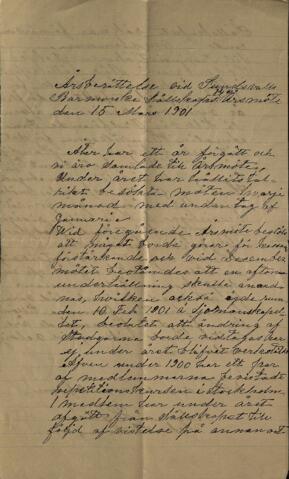 Årsberättelse vid Sundsvalls
Barnmorske Sällskaps Årsmöte
den 15 Mars 1901
Åter har ett år förgått och
vi äro samlade till årsmöte.
Under året har hållits tal-
rikt besökta möten hvarje
månad med undantag af
Januari.
Vid föregående Årsmöte beslöts
att något borde göras för
förstärkande och vid December
mötet bestämdes att en afton
underhållning skulle anord
nas, hvilken också egde rum
den 10 Feb 1901 å Sjömanskapel
let, beslutet att ändring af
Stadgarna borde vidtagas har
ej under året blifvit verkstäldt
Äfven under 1900 har ett par
af medlemmarna bevistat
repetitions kursen i Stockholm.
1 medlem har under året
afgått från sällskapet till
följd af vistelse på annan ort